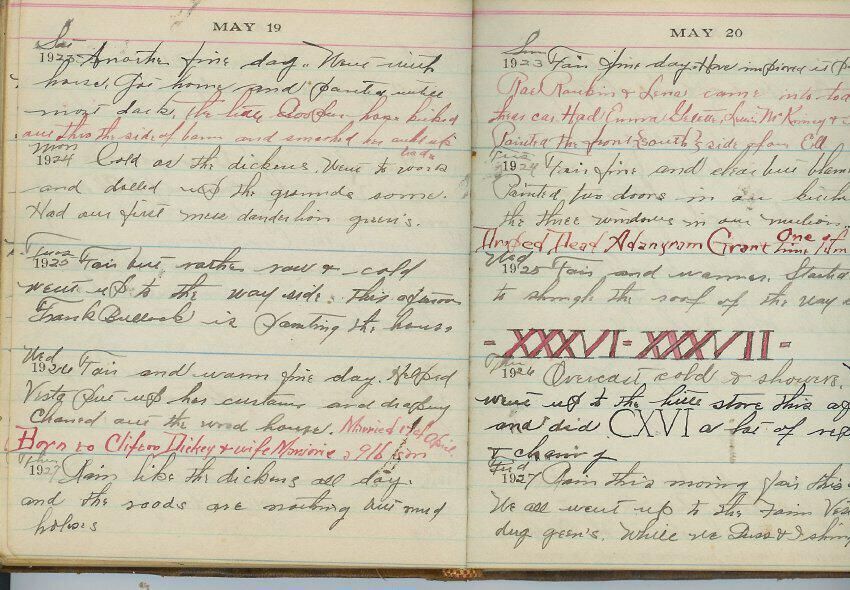 MAY 19
Sat
1923 Another fine day. Went with
horse. Got home and painted untill
most dark. The little colt horse kicked
out thro the side of barn and smashed her
Mon
1924 Cold as the dickens. Went to work
and dolled up the grounds some.
Had our first mess dandelion green's.
Tues
1925 Fair but rather raw & cold
went up to the way side. This afternoon
Frank Bullock is painting the house
Wed
1926 Fair and warm fine day. Helped
Vesta put up her curtains and drapery
Cleaned out the wood house. Married 1st of April.
Born to Clifton Dickey & wife Marjorie a 9 lb son
Thur
1927 Rain like the dickens all day.
and the roads are nothing but mud
holes
MAY 20
Sun
1923 Fair fine day. Have improved it
Rankin & Lena came into
car Had Emma McKinney &
Painted the front {south} side of our Ell
Tues
1924 Fair fine and clear but
Painted two doors in our
the three windows in our
Droped Dead Adangram Grant One of
time
Wed
1925 Fair and warmer. Started
to shingle the roof of the way
- XXXVI - XXXVII -
Thur
1926 Overcast cold & showers.
went up to the store this
and did CXVI a lot of
& charing
Frid
1927 Rain this morning fair this
We all went up to the Farm
dug green's. While we